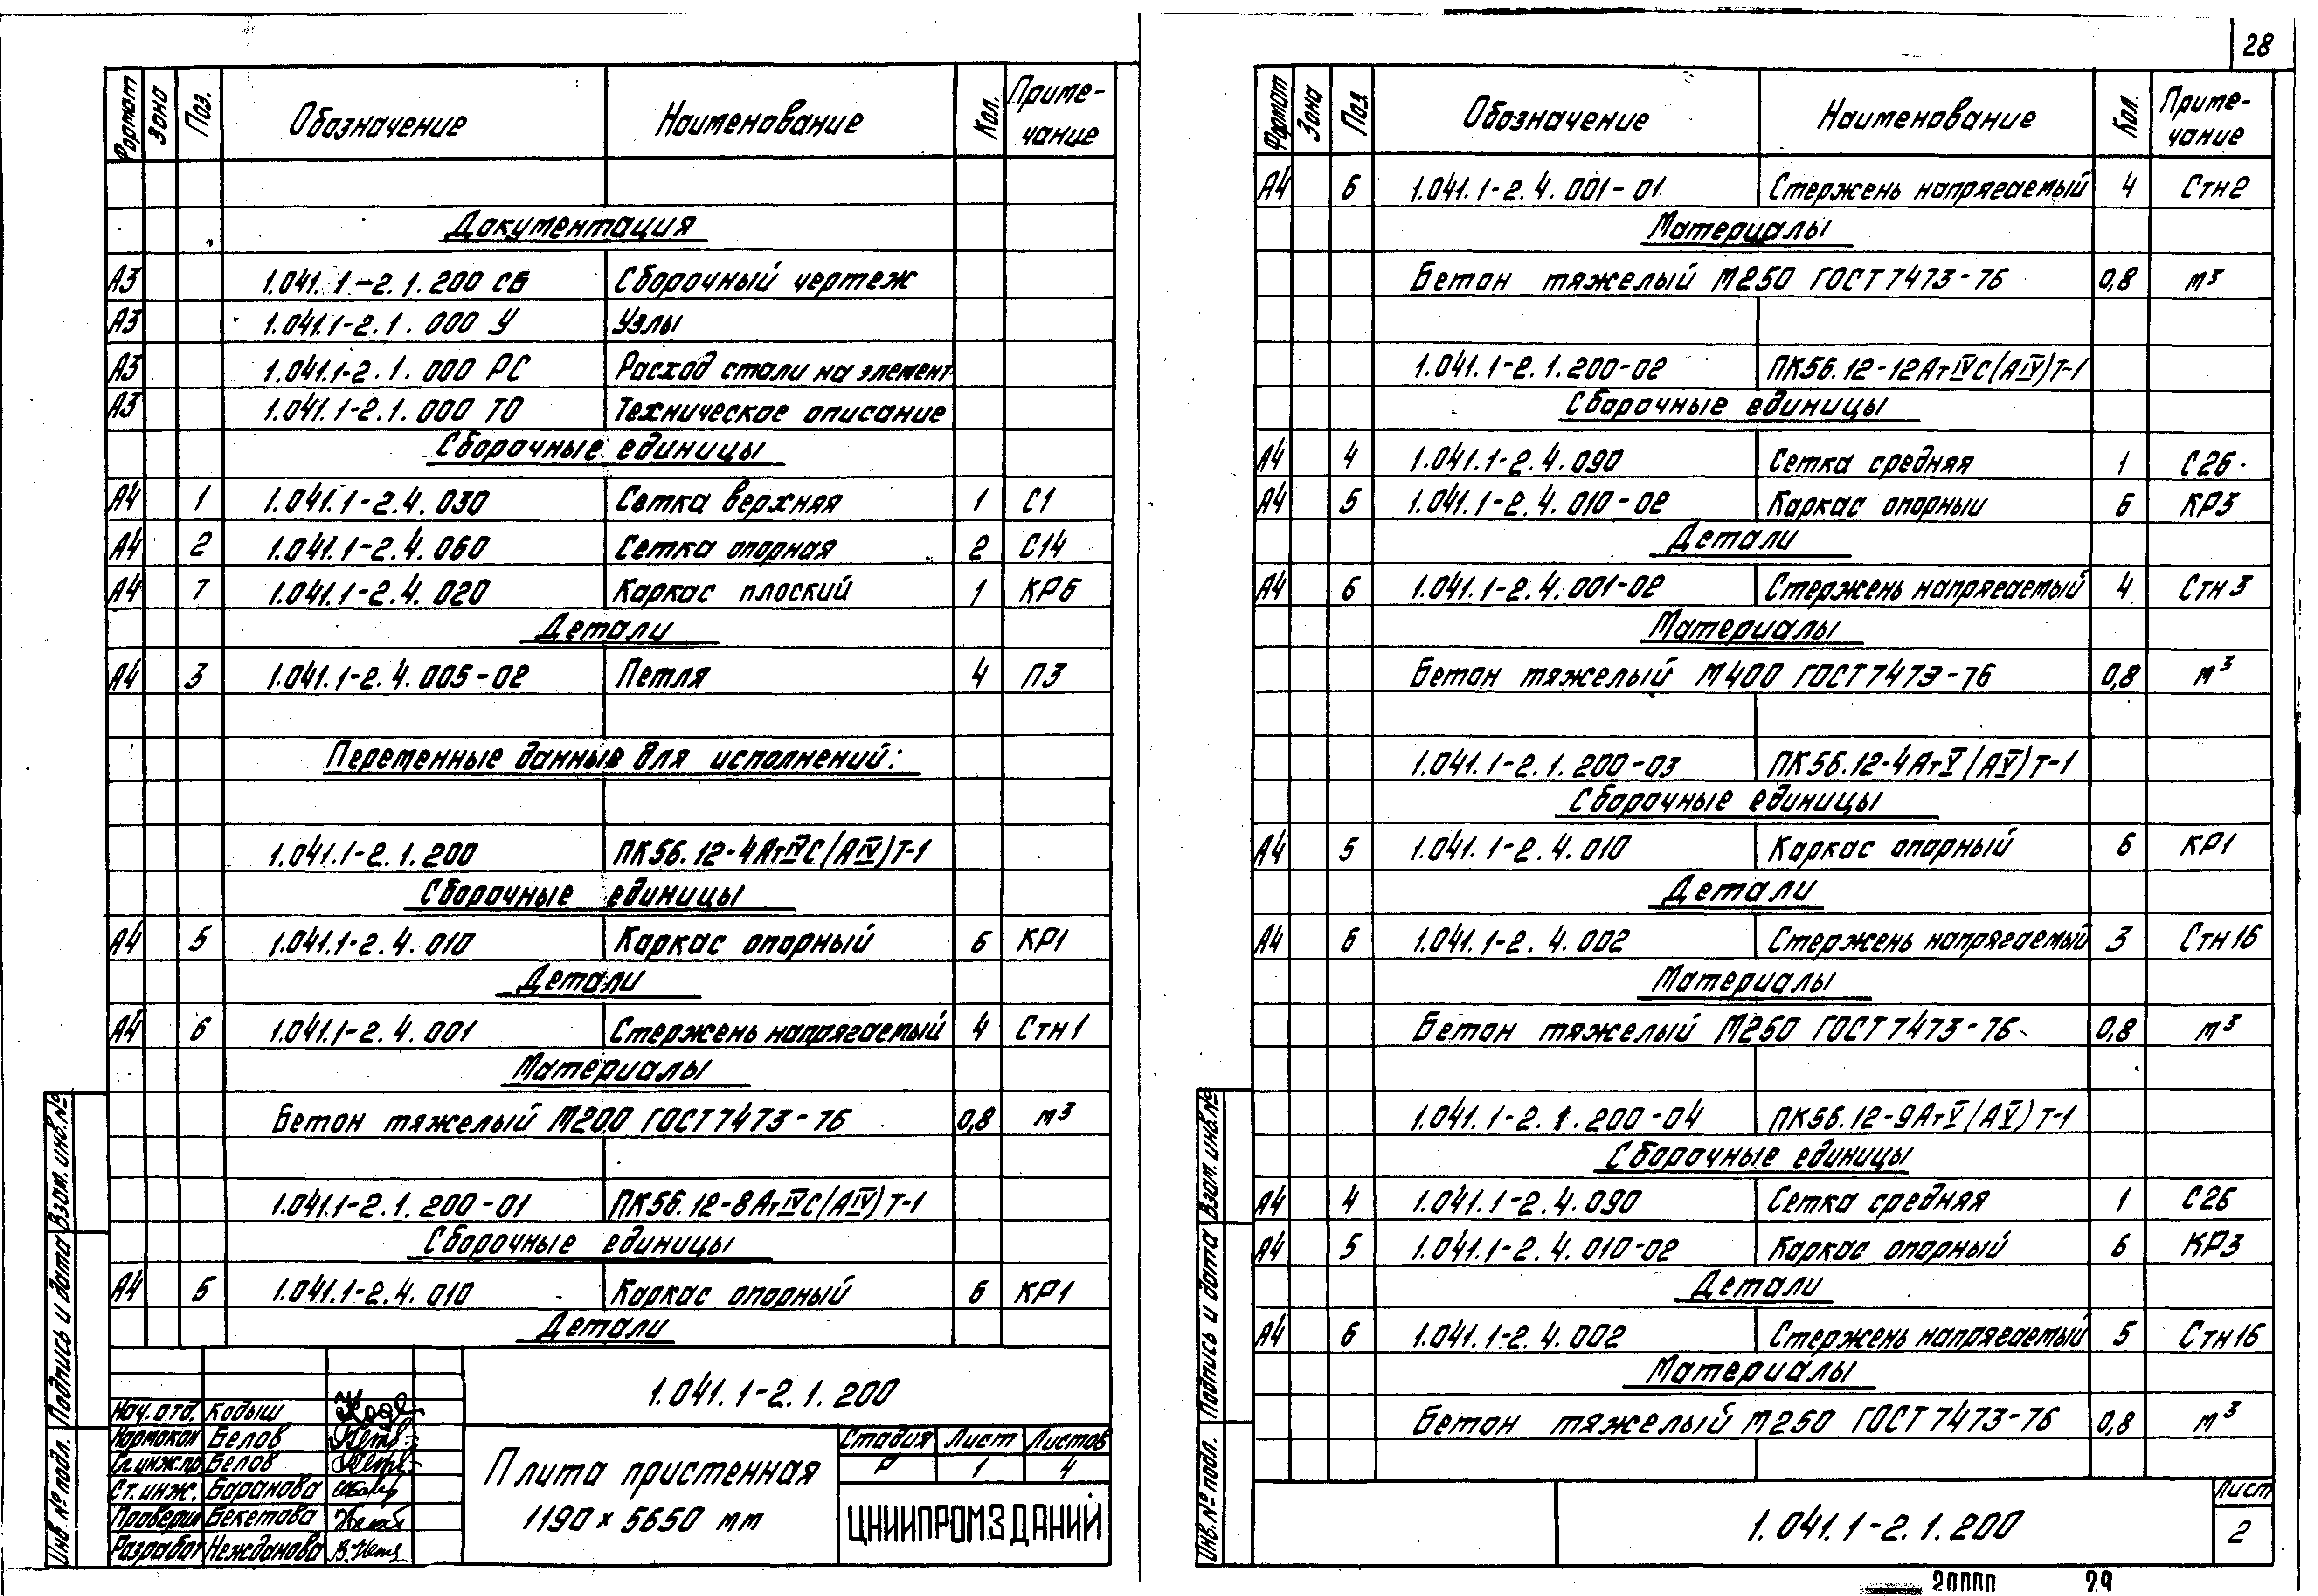 Формат Зона Поз. Обозначение Наименование Кол. Приме-
чание
Документация
А3 1.041.1-2.1.200 СБ Сборочный чертеж
А3 1.041.1-2.1.000 У Узлы
А3 1.041.1-2.1.000 РС Расход стали на элемент
А3 1.041.1-2.1.000 ТО Техническое описание
Сборочные единицы
А4 1 1.041.1-2.4.030 Сетка верхняя 1 С1
А4 2 1.041.1-2.4.060 Сетка опорная 2 С14
А4 7 1.041.1-2.4.020 Каркас плоский 1 КР6
Детали
А4 3 1.041.1-2.4.005-02 Петля 4 П3
Переменные данные для исполнений:
1.041.1-2.1.200 ПК56.12-4АтIVС(АIV)Т-1
Сборочные единицы
А4 5 1.041.1-2.4.010 Каркас опорный 6 КР1
Детали
А4 6 1.041.1-2.4.001 Стержень напрягаемый 4 Стн1
Материалы
Бетон тяжелый М200 ГОСТ 7473-76 0,8 м³
1.041.1-2.1.200-01 ПК56.12-8АтIVС(АIV)Т-1
Сборочные единицы
А4 5 1.041.1-2.4.010 Каркас опорный 6 КР1
Детали
Инв.№ подл. Подпись и дата Взам.инв.№
1.041.1-2.1.200
Нач.отд. Кодыш
Нормокон Белов
Гл.инж.пр Белов
Ст.инж. Баранова
Проверил Бекетова
Разработ Нежданова
Плита пристенная
1190×5650 мм
Стадия Лист Листов
Р 1 4
ЦНИИПРОМЗДАНИЙ
28
Формат Зона Поз. Обозначение Наименование Кол. Приме-
чание
А4 6 1.041.1-2.4.001-01 Стержень напрягаемый 4 Стн2
Материалы
Бетон тяжелый М250 ГОСТ 7473-76 0,8 м³
1.041.1-2.1.200-02 ПК56.12-12АтIVС(АIV)Т-1
Сборочные единицы
А4 4 1.041.1-2.4.090 Сетка средняя 1 С26
А4 5 1.041.1-2.4.010-02 Каркас опорный 6 КР3
Детали
А4 6 1.041.1-2.4.001-02 Стержень напрягаемый 4 Стн3
Материалы
Бетон тяжелый М400 ГОСТ 7473-76 0,8 м³
1.041.1-2.1.200-03 ПК56.12-4АтV(АV)Т-1
Сборочные единицы
А4 5 1.041.1-2.4.010 Каркас опорный 6 КР1
Детали
А4 6 1.041.1-2.4.002 Стержень напрягаемый 3 Стн16
Материалы
Бетон тяжелый М250 ГОСТ 7473-76 0,8 м³
1.041.1-2.1.200-04 ПК56.12-9АтV(АV)Т-1
Сборочные единицы
А4 4 1.041.1-2.4.090 Сетка средняя 1 С26
А4 5 1.041.1-2.4.010-02 Каркас опорный 6 КР3
Детали
А4 6 1.041.1-2.4.002 Стержень напрягаемый 5 Стн16
Материалы
Бетон тяжелый М250 ГОСТ 7473-76 0,8 м³
Инв.№ подл. Подпись и дата Взам.инв.№
1.041.1-2.1.200
Лист
2
29